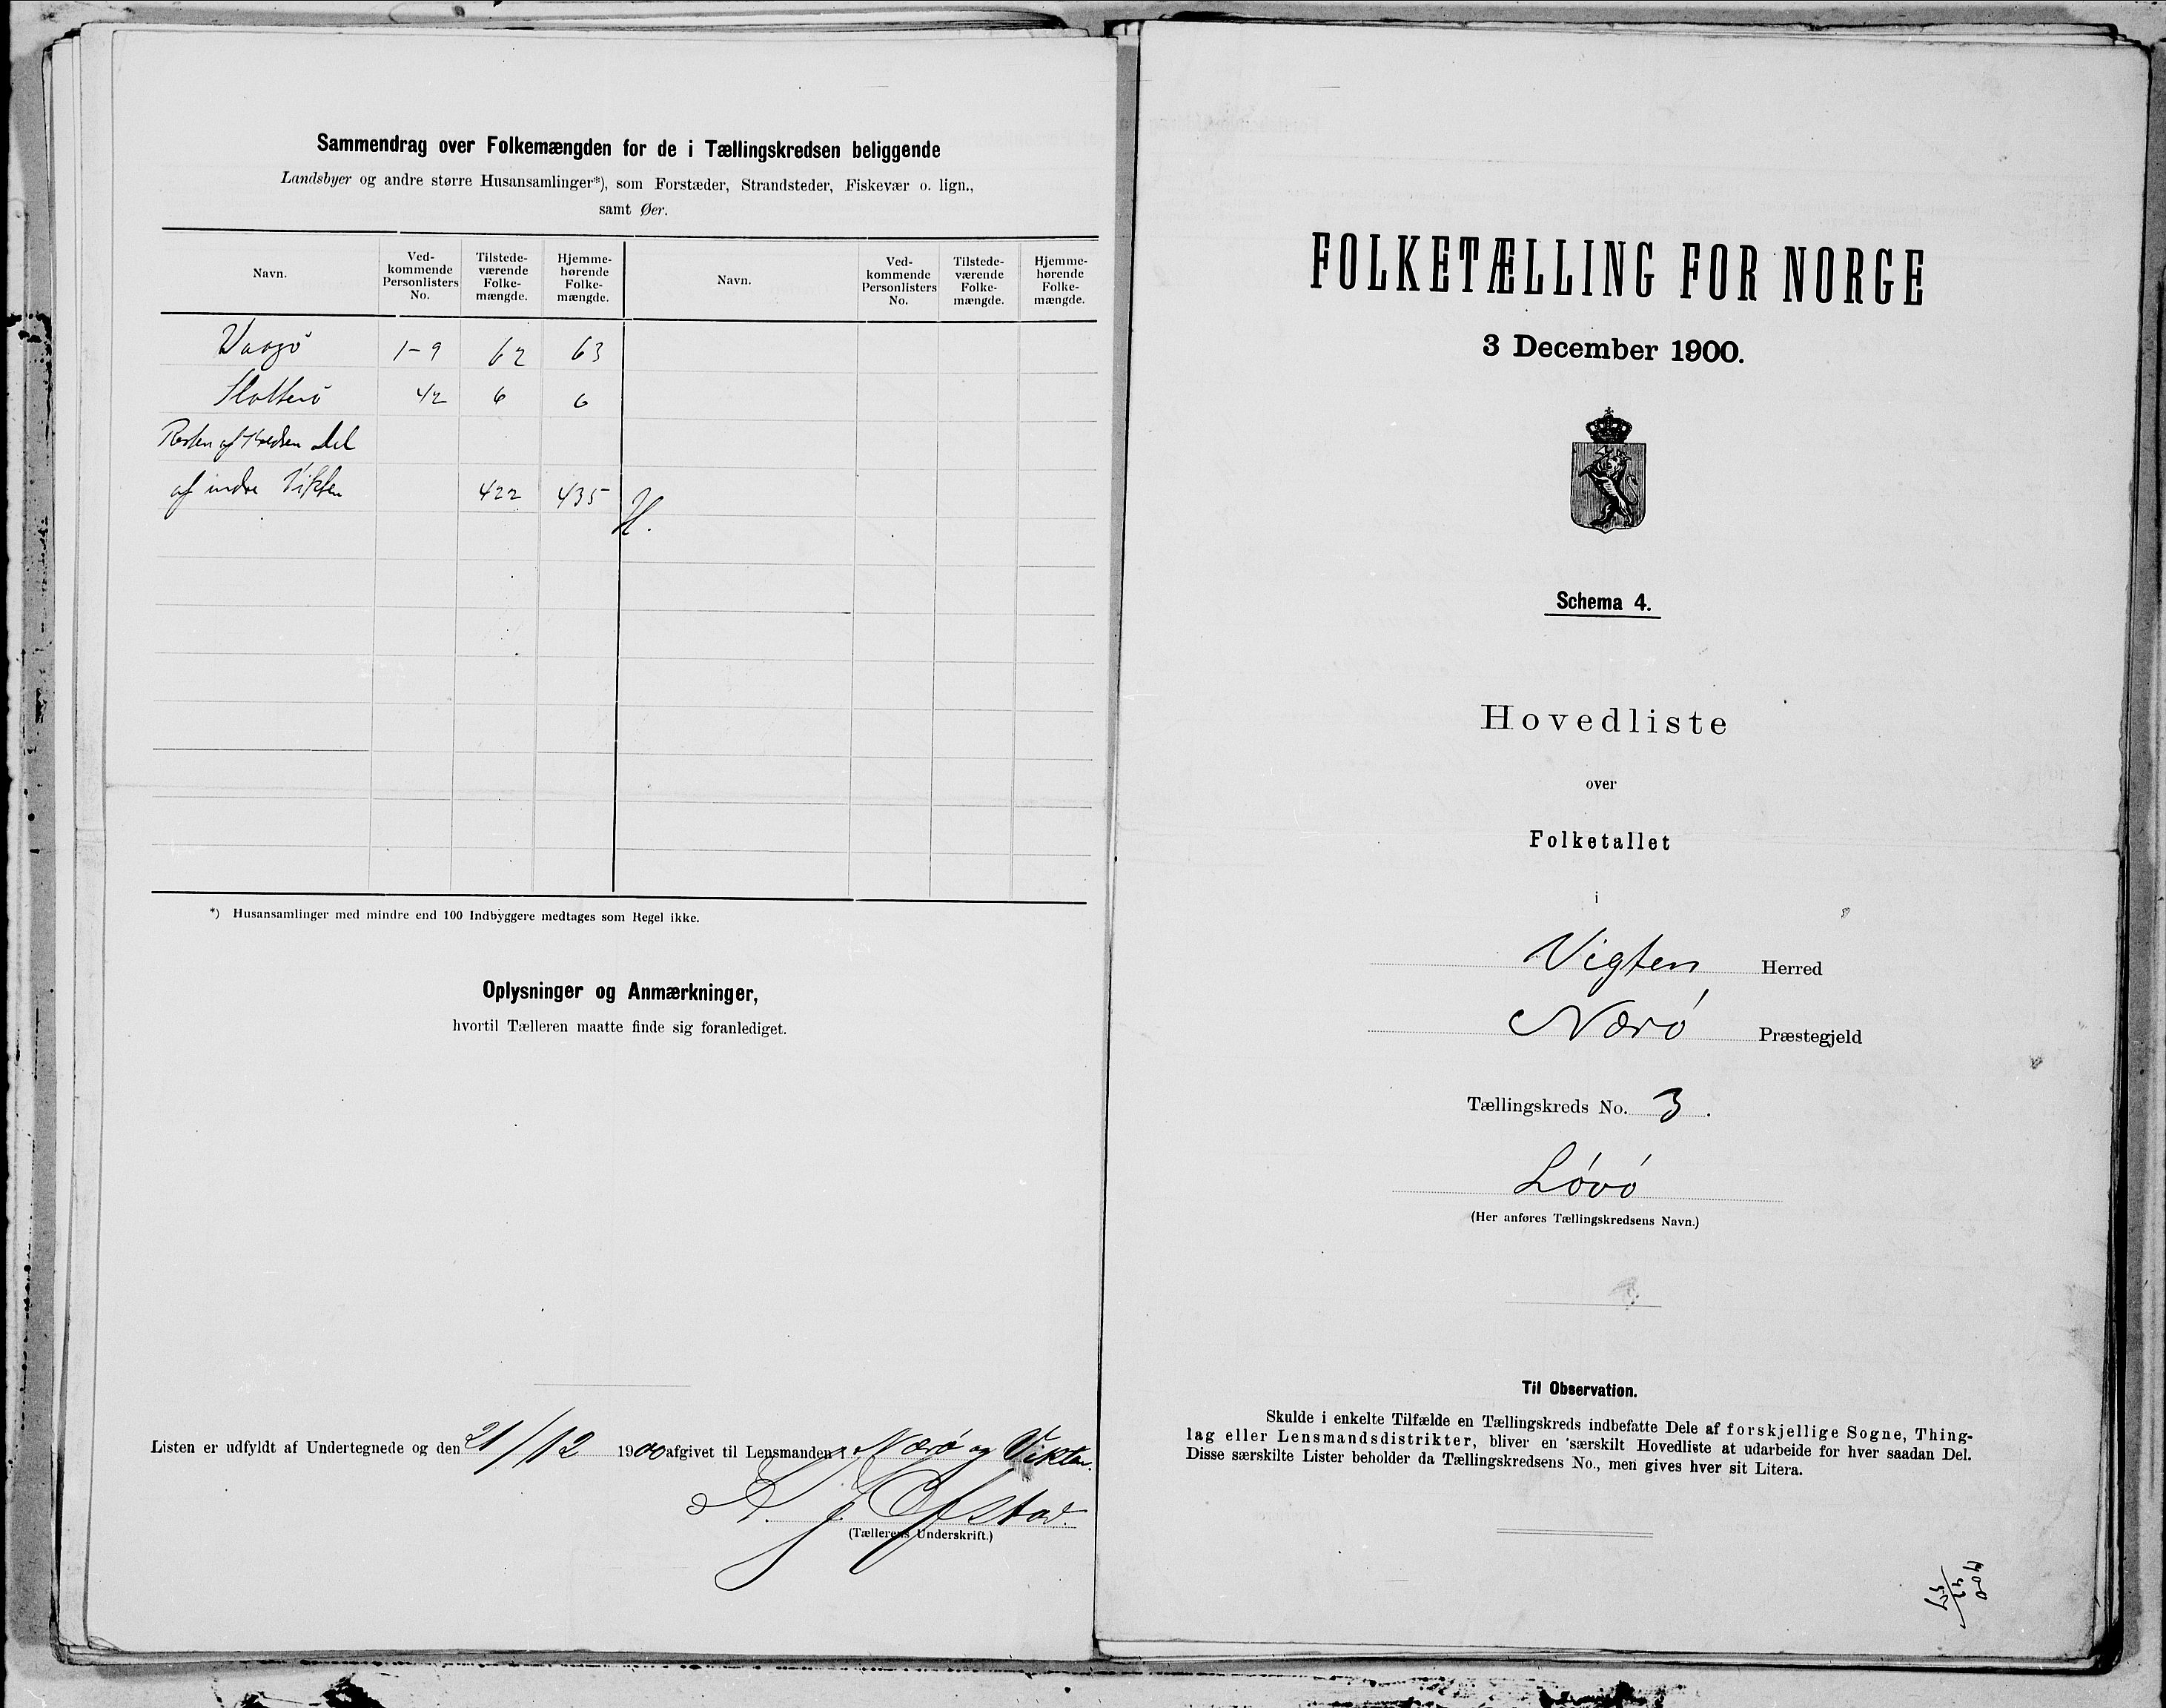 Sammendrag over Folkemængden for de i Tællingskredsen beliggende
Landsbyer og andre større Husansamlinger*), som Forstæder, Strandsteder, Fiskevær o. lign.,
samt Øer.
Navn. Ved-kommende Personlisters No. Tilstede-værende Folke-mængde. Hjemme-hørende Folke-mængde. Navn. Ved-kommende Personlisters No. Tilstede-værende Folke-mængde. Hjemme-hørende Folke-mængde.
1-9 62 63
42 6 6
Resten af Kredsen Del
af indre Vikten 422 435
H.
*) Husansamlinger med mindre end 100 Indbyggere medtages som Regel ikke.
Oplysninger og Anmærkninger,
hvortil Tælleren maatte finde sig foranlediget.
Listen er udfyldt af Undertegnede og den 21/12 1900 afgivet til Lensmanden i Nærø og Vikten.
Ofstad.
(Tællerens Underskrift.)
FOLKETÆLLING FOR NORGE
3 December 1900.
Schema 4.
Hovedliste
over
Folketallet
i
Vigten Herred
Nærø Præstegjeld
Tællingskreds No. 3.
Løvø
(Her anføres Tællingskredsens Navn.)
Til Observation.
Skulde i enkelte Tilfælde en Tællingskreds indbefatte Dele af forskjellige Sogne, Thing-
lag eller Lensmandsdistrikter, bliver en særskilt Hovedliste at udarbeide for hver saadan Del.
Disse særskilte Lister beholder da Tællingskredsens No., men gives hver sit Litera.